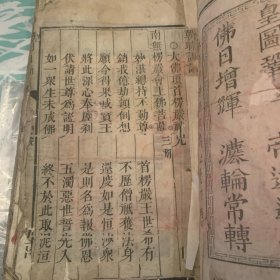 皇圖鞏
佛日增輝　灋輪常轉
○大佛頂首楞嚴神咒
南無楞嚴會上佛菩薩 三稱
妙湛總持不動尊　首楞嚴王世希有
銷我億劫顛倒想　不歷僧祇獲法身
願今得果成寶王　還度如是恒沙眾
將此深心奉塵剎　是則名為報佛恩
伏請世尊為證明　五濁惡世誓先入
如一眾生未成佛　終不於此取泥洹